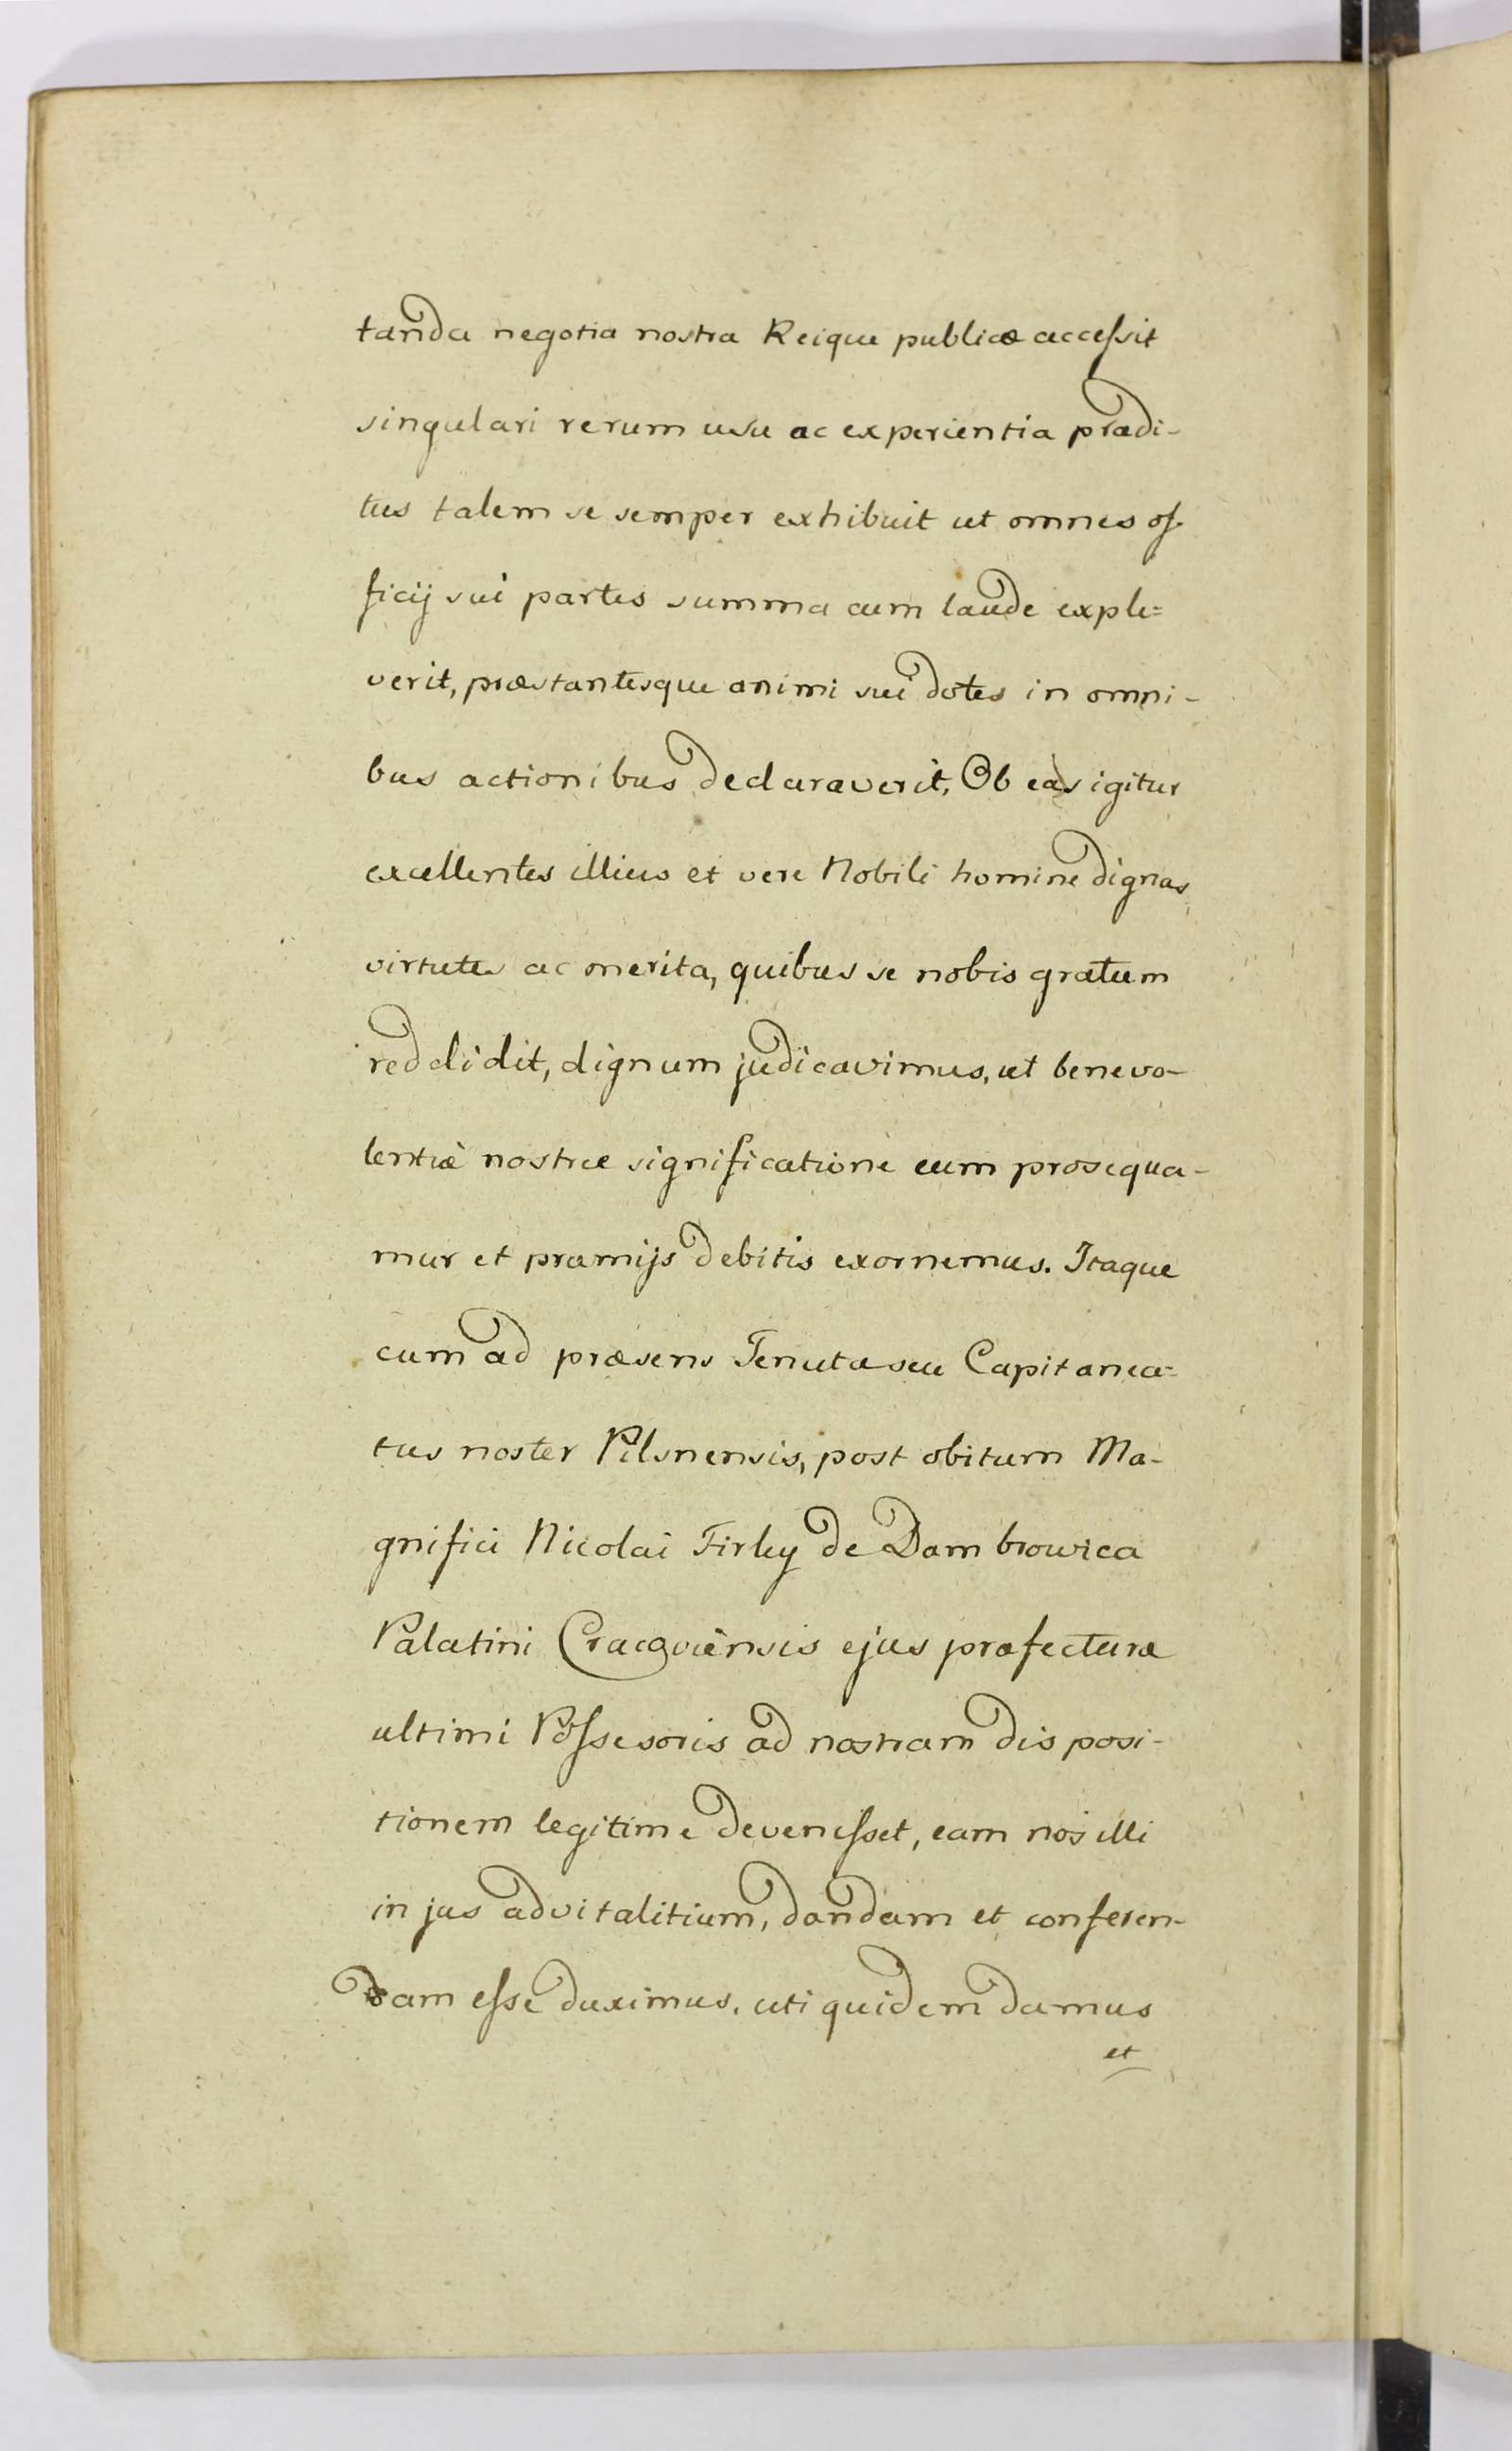 tanda negotia nostra Reique publicæ accessit
singulari rerum usu ac experientia prædi-
tus talem se semper exhibuit ut omnes of-
ficij sui partes summa cum laude exple=
verit, præstantesque animi sui dotes in omni-
bus actionibus declaraverit. Ob eas igitur
excellentes illius et vere Nobili homine dignas
virtutes ac merita, quibus se nobis gratum
reddidit, dignum judicavimus, ut benevo-
lentiæ nostræ significatione eum prosequa-
mur et præmijs debitis exornemus. Itaque
cum ad præsens Tenuta seu Capitanea=
tus noster Pilsnensis, post obitum Ma-
gnifici Nicolai Firley de Dambrowica
Palatini Cracoviensis ejus præfecturæ
ultimi Possesoris ad nostram disposi-
tionem legitime devenisset, eam nos illi
in jus advitalitium, dandam et conferen-
dam esse duximus, uti quidem damus
et